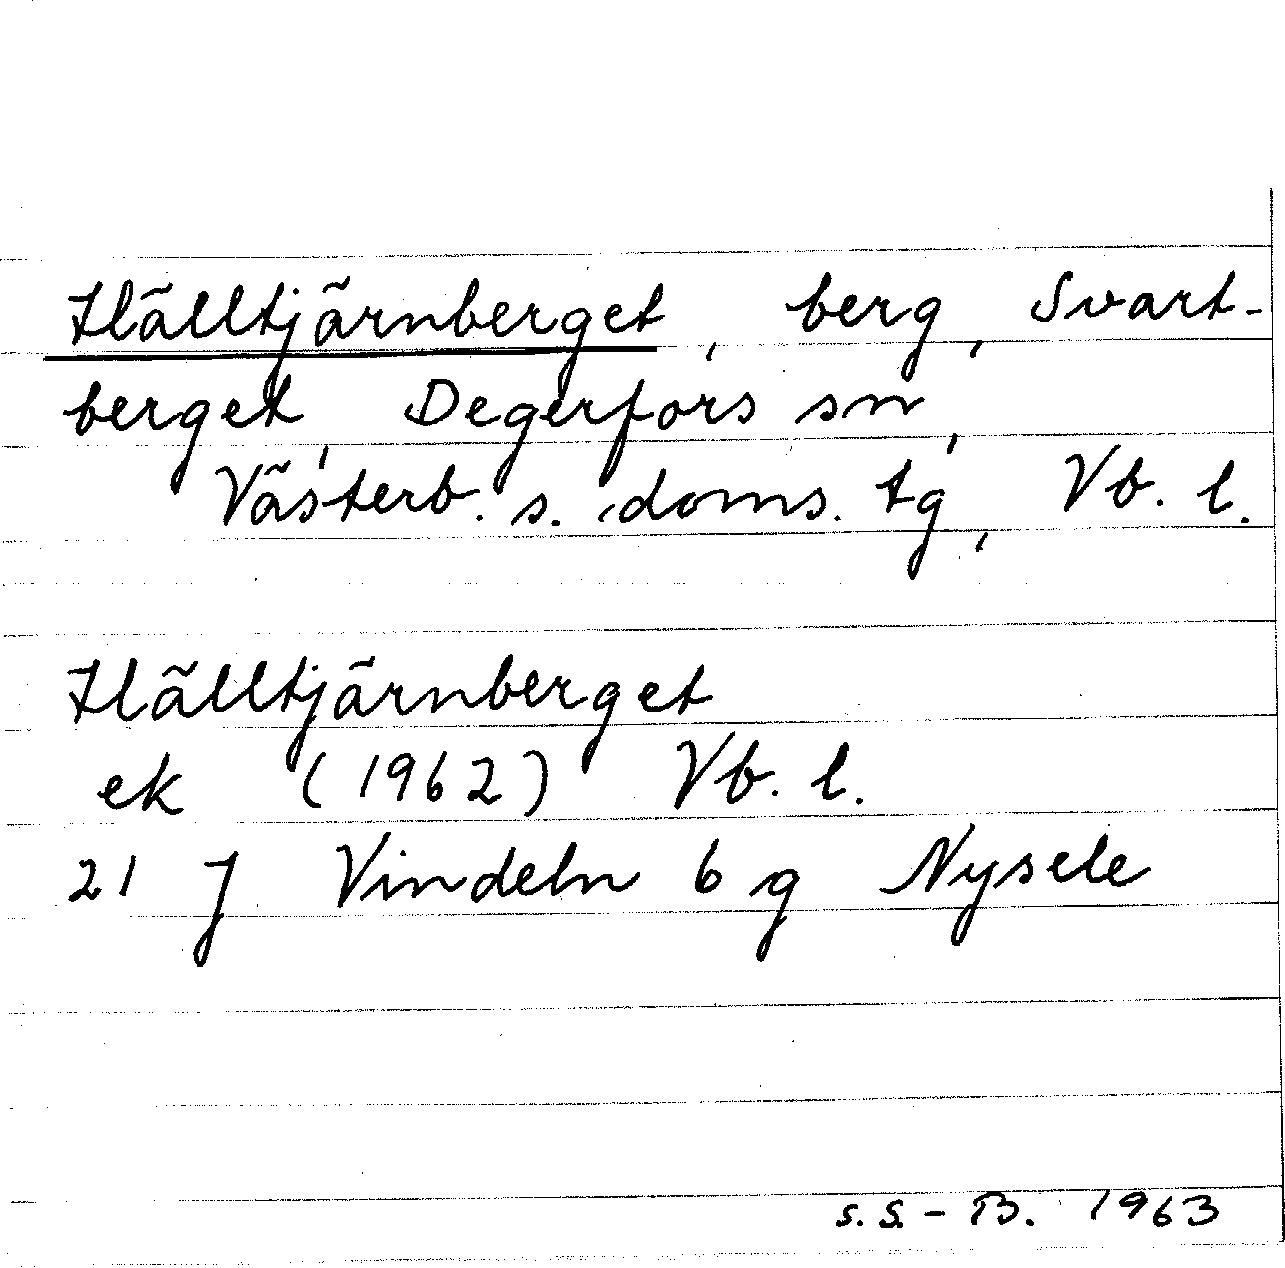 Hälltjärnberget, berg, Svart-
berget, Degerfors sn,
Västerb. s. doms. tg, Vb. l.
Hälltjärnberget
ek (1962) Vb. l.
21 J Vindeln 6 g Nysele
S.S-B. 1963